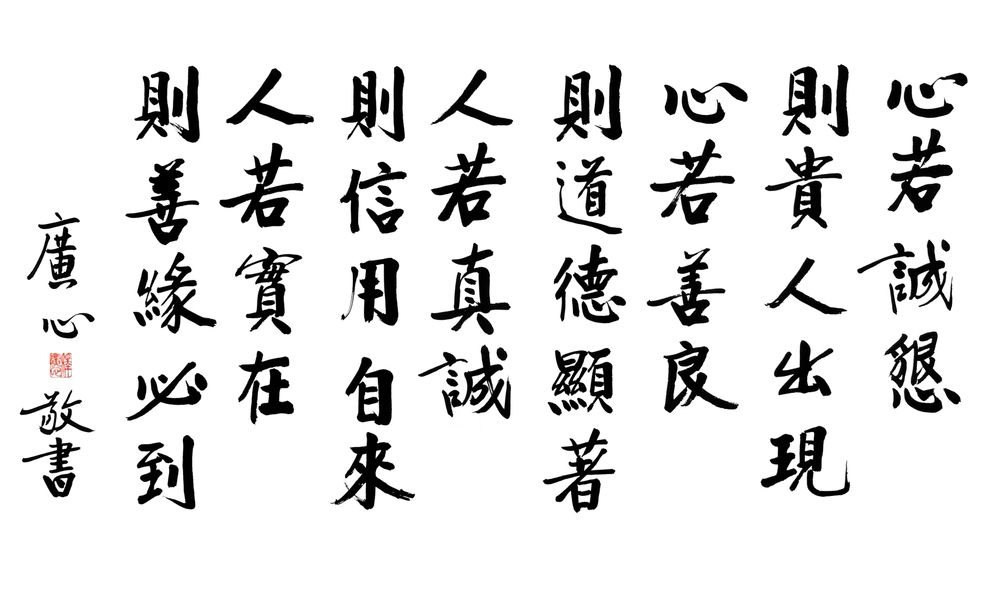 心若誠懇
則貴人出現
心若善良
則道德顯著
人若真誠
則信用自來
人若實在
則善緣必到
廣心
敬書